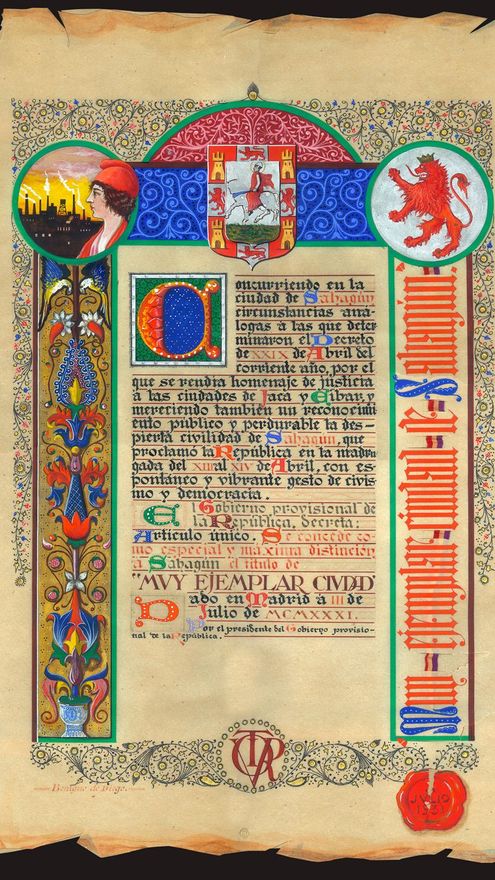 Concurriendo en la
ciudad de Sahagún
circunstancias aná-
logas à las que deter
minaron el Decreto
de XXIX de Abril del
corriente año, por el
que se rendia homenaje de justicia
à las ciudades de Jaca y Eibar, y
mereciendo también un reconocimi
ento público y perdurable la des-
pierta civilidad de Sahagún, que
proclamó la República en la madru
gada del XIII al XIV de Abril, con es-
pontáneo y vibrante gesto de civis-
mo y democracia.
El Gobierno provisional de
la República, decreta:
Artículo único. Se concede co-
mo especial y máxima distinción
à Sahagún el título de
"MVY EJEMPLAR CIVDAD"
Dado en Madrid à III de
Julio de MCMXXXI.
Por el presidente del Gobierno provisio-
nal de la República.
Benigno de Diego
JVLIO
1931